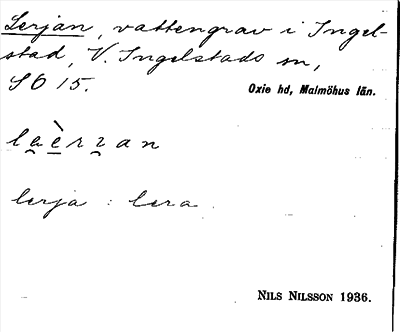 Lerjan, vattengrav i Ingel-
stad, V. Ingelstads sn,
SO 15.
Oxie hd, Malmöhus län.
laèrzan
lerja : lera.
NILS NILSSON 1936.